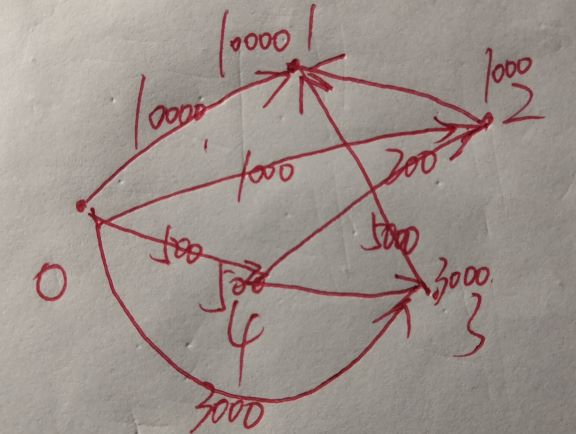 10000 1
10000
1000
2
1000
200
500
5000
0
500
3000
4
3
3000